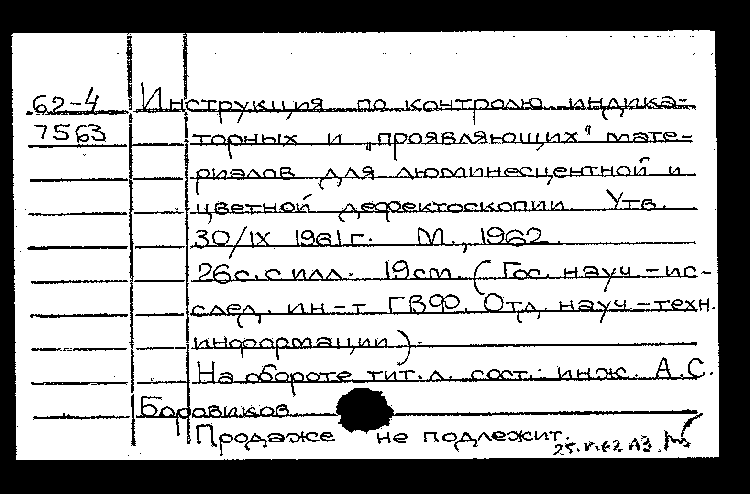 62-4 Инструкция по контролю индика-
7563 торных и „проявляющих" мате-
риалов для люминесцентной и
цветной дефектоскопии. Утв.
30/IX 1961 г. М., 1962.
26 с. с илл. 19 см. (Гос. науч.-ис-
след. ин-т ГВФ. Отд. науч.-техн.
информации).
На обороте тит. л. сост.: инж. А. С.
Боровиков
Продаже не подлежит.